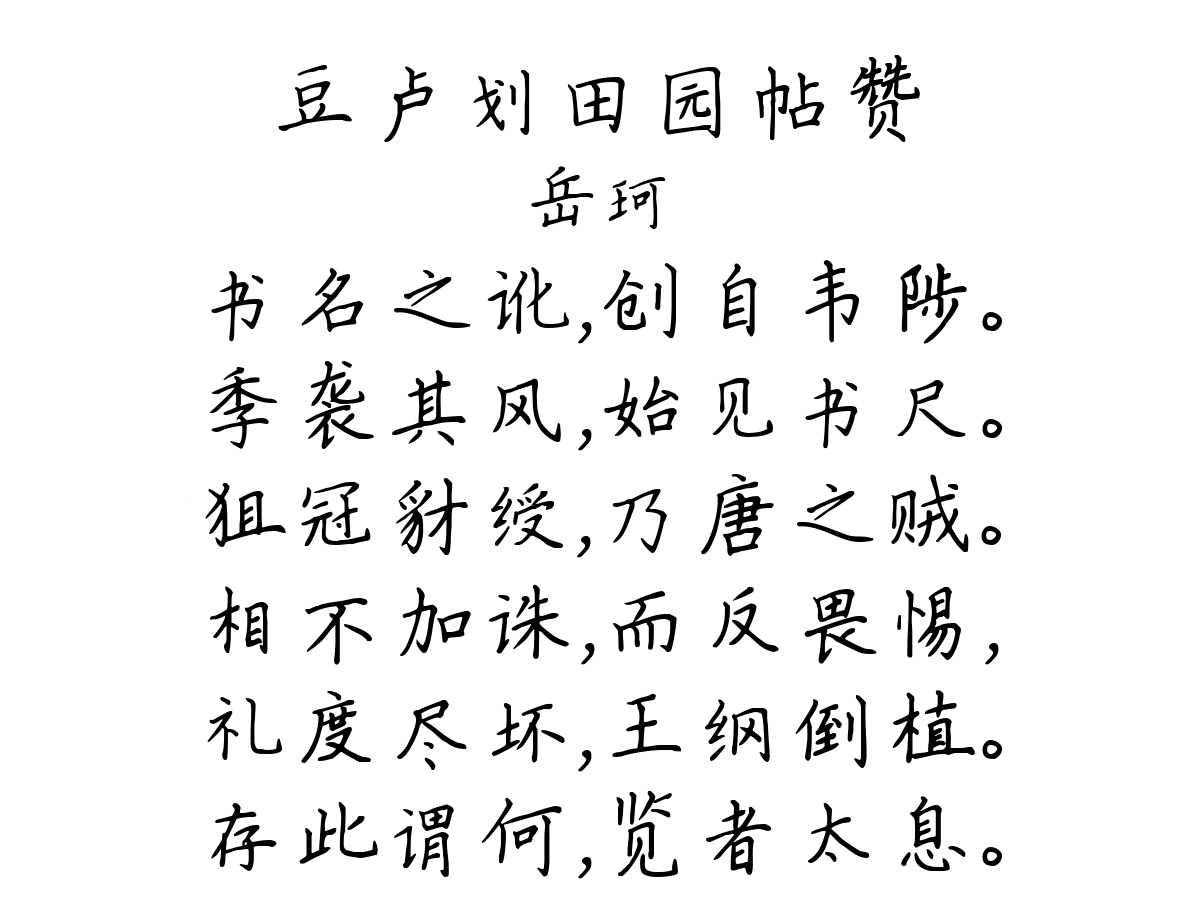 豆卢划田园帖赞
岳珂
书名之讹,创自韦陟。
季袭其风,始见书尺。
狙冠豺绶,乃唐之贼。
相不加诛,而反畏惕,
礼度尽坏,王纲倒植。
存此谓何,览者太息。